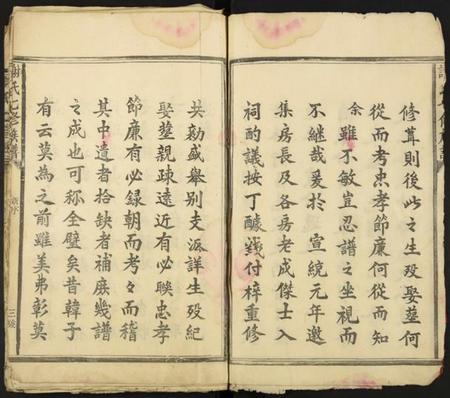 修葺則後此之生歿娶塟何
從而考忠孝節廉何從而知
余雖不敏豈忍譜之坐視而
不繼哉爰於宣統元年邀
集房長及各房老成傑士入
祠酌議按丁醵錢付梓重修
共勷盛舉別支派詳生歿紀
娶塟親疎遠近有必映忠孝
節廉有必録朝而考々而稽
其中遺者拾缺者補庶幾譜
之成也可称全璧矣昔韓子
有云莫為之前雖美弗彰莫
謝氏七修族譜